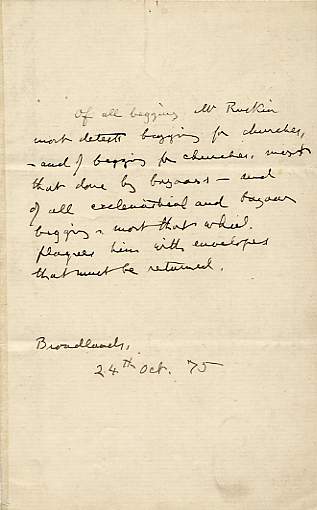 Of all begging, Mr Ruskin
most detests begging for churches,
- and of begging for churches, most
that done by bazaars - and
of all ecclesiastical and bazaar
begging - most that which
plagues him with envelopes
that must be returned.
Broadlands,
24th Oct. 75